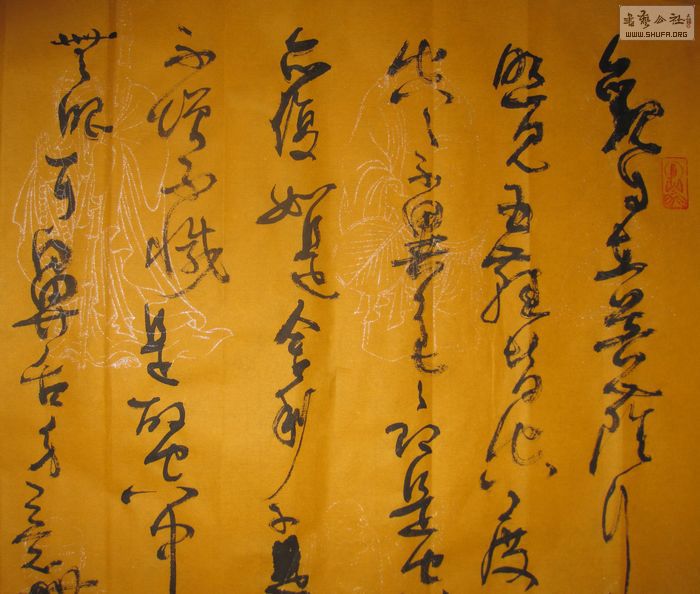 觀自在菩薩行
照見五蘊皆空度
空々不異色々即是空
亦復如是舍利子是
不增不減是故空中
無眼耳鼻舌身意
書藝公社
WWW.SHUFA.ORG